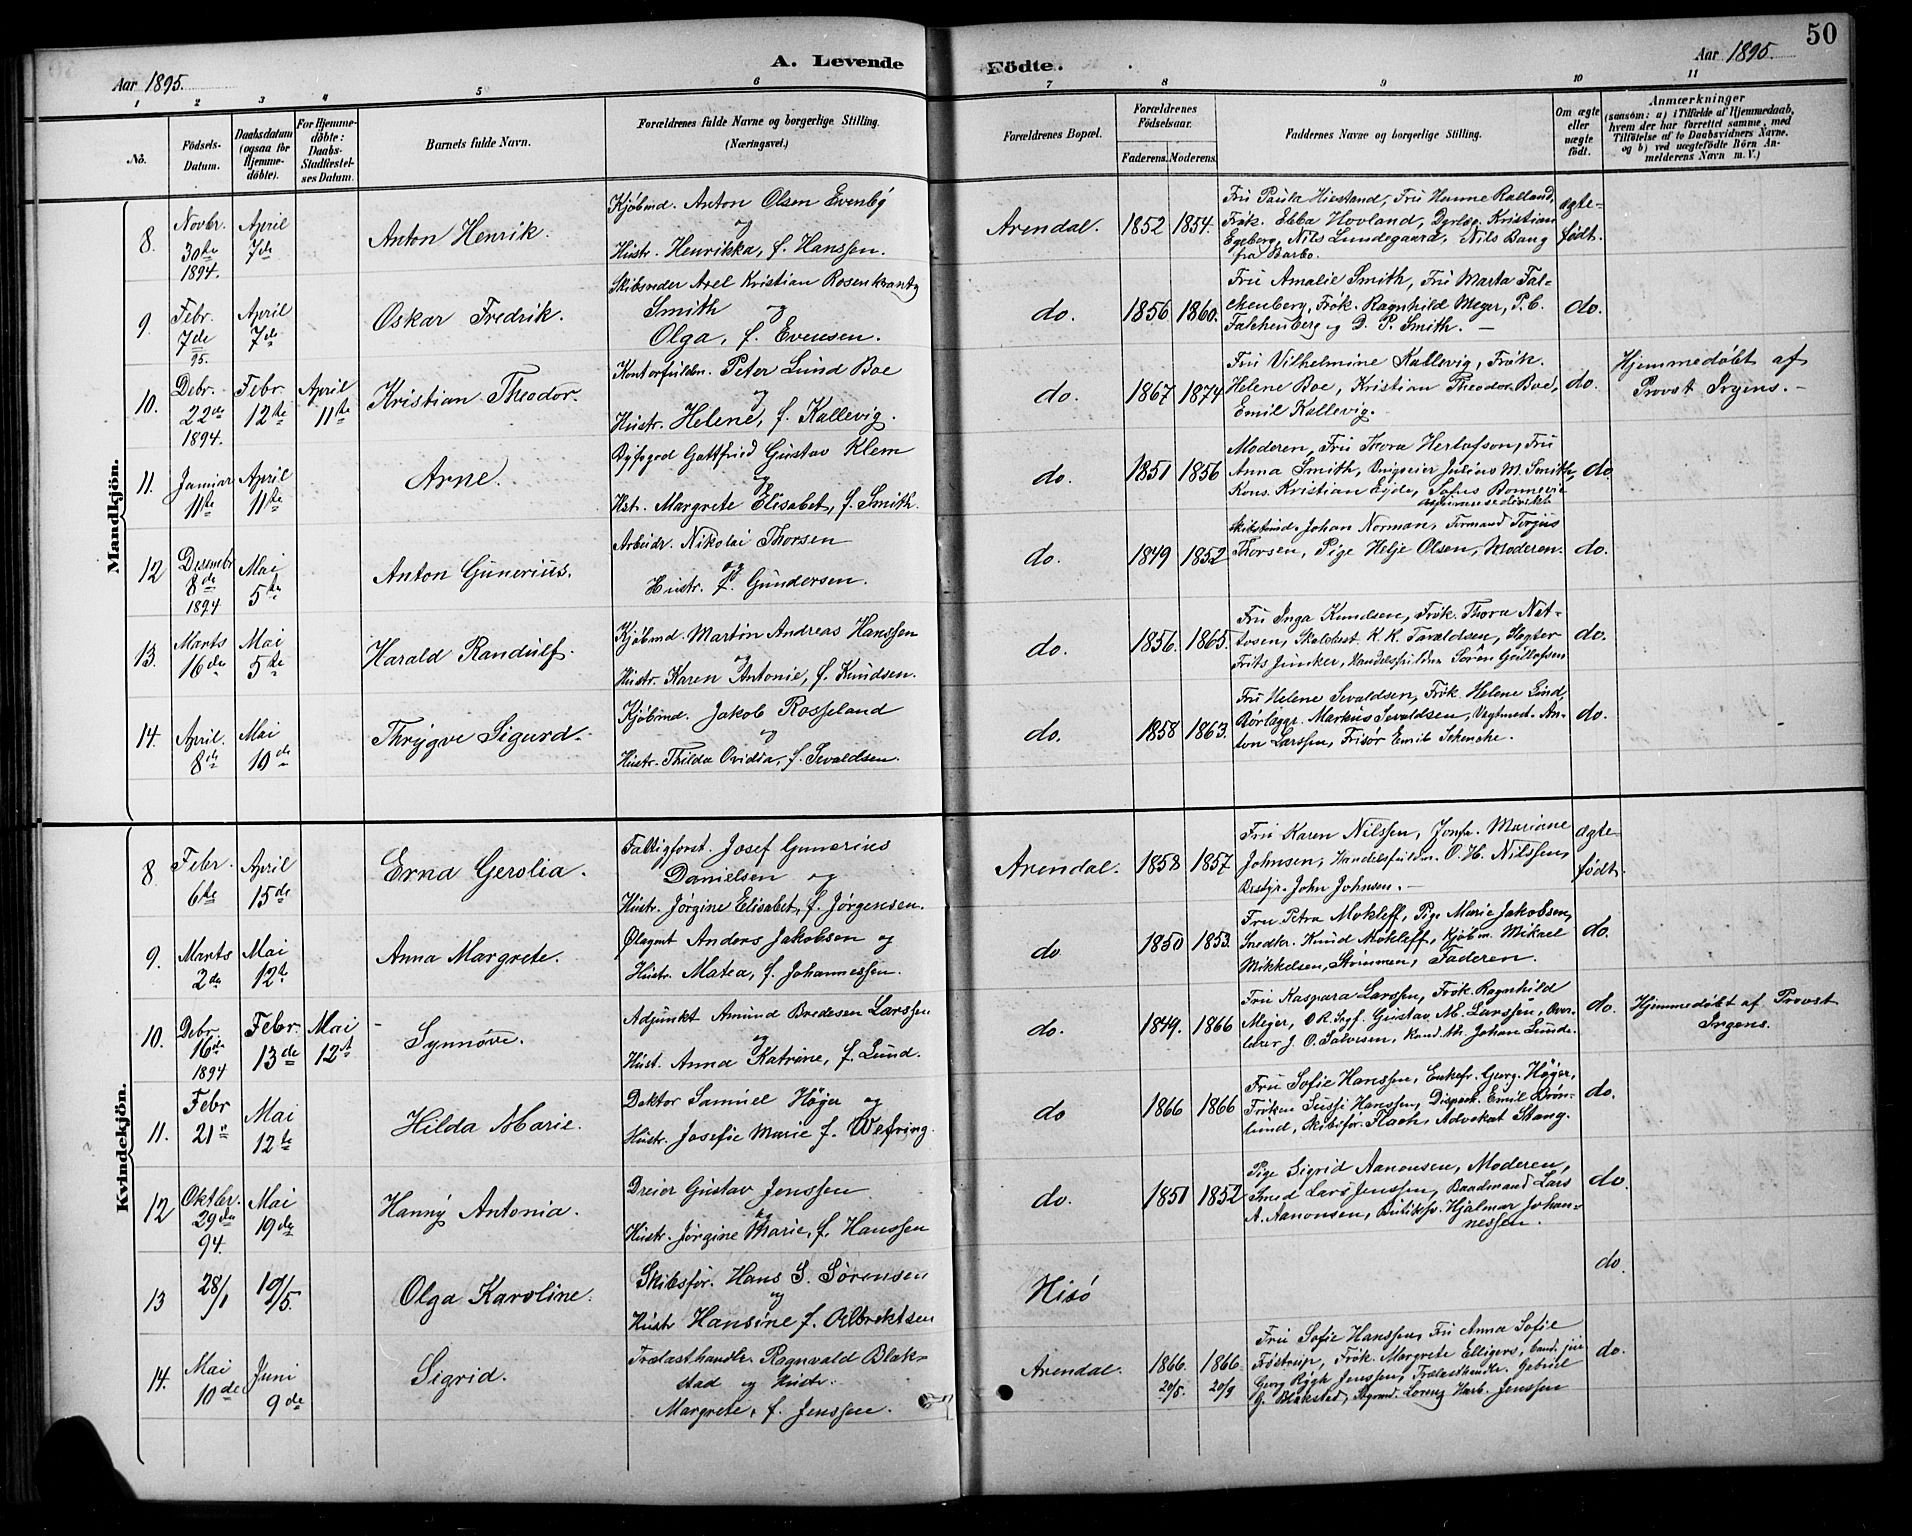 50
Aar 1895.
A. Levende
Födte.
Aar 1895.
1 2 3 4 5 6 7 8 9 10 11
No.
Födsels-
Datum.
Daabsdatum
(ogsaa for
Hjemme-
döbte).
For Hjemme-
döbte:
Daabs-
Stadfæstel-
ses Datum.
Barnets fulde Navn.
Forældrenes fulde Navne og borgerlige Stilling.
(Næringsvei.)
Forældrenes Bopæl.
Forældrenes
Födselsaar.
Faderens. Moderens.
Faddernes Navne og borgerlige Stilling.
Om ægte
eller
uægte
født.
Anmærkninger
(saasom: a) i Tilfælde af Hjemmedaab,
hvem der har forrettet samme, med
Tilföielse af to Daabsvidners Navne,
og b) ved uægtefödte Börn An-
melderens Navn m. V.)
Mandkjön.
8.
Novbr.
30te
1894.
April
7de
Anton Henrik.
Kjøbmd. Anton Olsen Evenby
og
Hustr. Henrikka, f. Hanssen.
Arendal.
1852 1854.
Fru Paula Hiestand, Fru Hanne Ralland,
Frøk. Ebba Hovland, Kristian
Egeberg, Nils Lundegaard, Nils Bang
fra Barbo.
ægte-
født.
9.
Febr.
7de
95.
April
7de
Oskar Fredrik.
Skibsreder Axel Kristian Rosenkrantz
Smith og
Olga, f. Evensen.
do.
1856 1860.
Fru Amalie Smith, Fru Marta Fal-
ckenberg, Frøk. Ragnhild Meyer, P. C.
Falckenberg og D. P. Smith. —
do.
10.
Debr.
22de
1894.
Febr.
12te
April
11te
Kristian Theodor.
Kontorfuldm. Peter Lund Boe
og
Hustr. Helene, f. Kallevig.
do.
1867 1874
Fru Vilhelmine Kallevig, Frøk.
Helene Boe, Kristian Theodor Boe,
Emil Kallevig.
do.
Hjemmedøbt af
Provst Irgens. —
11.
Januar
11te
April
11te
Arne.
Byfogod Gottfried Gustav Klem
og
Hstr. Margrete Elisabet, f. Smith.
do.
1851 1856
Moderen, Fru Thora Herlofson, Fru
Anna Smith, Brugseier Julius M. Smith,
Kons. Kristian Eyde, Sofus Bonnevie
do.
12
Desember
8de
1894
Mai
5te
Anton Gunerius.
Arbeidr. Nikolai Thorsen
og
Hustr. f. Gundersen.
do.
1849 1852
Skibstmd. Johan Norman, Tormand Torjus
Thorsen, Pige Helje Olsen, Moderen.
do.
13.
Marts
16de
Mai
5te
Harald Randulf.
Kjøbmd. Martin Andreas Hanssen
og
Hustr. Karen Antonie, f. Knudsen.
do.
1856. 1865.
Fru Inga Knudsen, Frøk. Thora Nat-
Skolebest. K. K. Tavaldsen,
Frits Junker, Handelsfuldm. Søren Gullofsen
do.
14.
April.
8de
Mai
19de
Thrygve Sigurd.
Kjøbmd. Jakob Rosseland
og
Hustr. Thilda Ovidia, f. Sevaldsen.
do.
1858 1863.
Fru Helene Sevaldsen, Frøk. Helene Lind,
Rørlæggr. Markus Sevaldsen, Vagtmed. An-
ton Larssen, Frisør Emil Schencke.
do.
Kvindekjön.
8.
Febr.
6te
April
15de
Erna Gerolia.
Fattigforst. Josef Gunerius
Danielsen og
Hustr. Jørgine Elisabet, f. Jørgensen.
Arendal.
1858 1857
Fru Karen Nilssen, Jomfr. Mariane
Johnsen, Handelsfuldm. O. H. Nilssen,
Bestyr. John Johnsen. —
ægte-
født.
9.
Marts
2de
Mai
12te
Anna Margrete.
Ølagent Anders Jakobsen og
Hustr. Matea, f. Johannessen.
do
1850 1853.
Fru Petra Mokleff, Pige Marie Jakobsen,
Snedkr. Knud Mokleff, Kjøbm. Mikael
Mikkelsen, Strømmen, Faderen.
do.
10.
Debr.
16de
1894
Febr.
13de
Mai
12te
Synnøve.
Adjunkt Amund Bredesen Larssen
og
Hust. Anna Katrine, f. Lund.
do.
1849. 1866
Fru Kaspara Larssen, Frøk. Ragnhild
Meyer, O.R. Sagf. Gustav M. Larssen, Over-
lærer J. O. Salvesen, Kand. th. Johan Lunde.
do.
Hjemmedøbt af Provst
Irgens.
11.
Febr
21de
Mai
12te
Hilda Marie.
Doktor Samuel Höyer og
Hustr. Josefie Marie f. Wefring.
do
1866 1866
Fru Sofie Hanssen, Enkefr. Georg. Höyer,
Frøken Sussi Hanssen, Dispach. Emil Brøn-
lund, Skibsfør. Flach, Advokat Stang.
do.
12
Oktbr.
29de
94.
Mai
19de
Hanny Antonia.
Dreier Gustav Jenssen
og
Hustr. Jørgine Marie, f. Hanssen
do.
1851 1852
Pige Sigrid Aanonsen, Moderen,
Smed Lars Jenssen, Baadmand Lars
A. Aanonsen, Butiksb. Hjalmar Johan-
nessen.
do.
13
28/1
19/5.
Olga Karoline.
Skibsför. Hans S. Sørensen
og
Hustr Hansine f. Albrektsen
Hisö
do.
14.
Mai
10de
Juni
9de
Sigrid.
Trælasthandlr. Ragnvald Blak-
stad og Hustr.
Margrete, f. Jenssen.
Arendal.
1866. 1866
20/5. 20/9
Fru Sofie Hanssen, Fru Anna Sofie
Frostrup, Frøk. Margrete Elligers, Cand. jur.
Georg Rygh Jenssen, Trælasthandlr. Gabriel
G. Blakstad, Lorenz Harb. Jenssen
do.